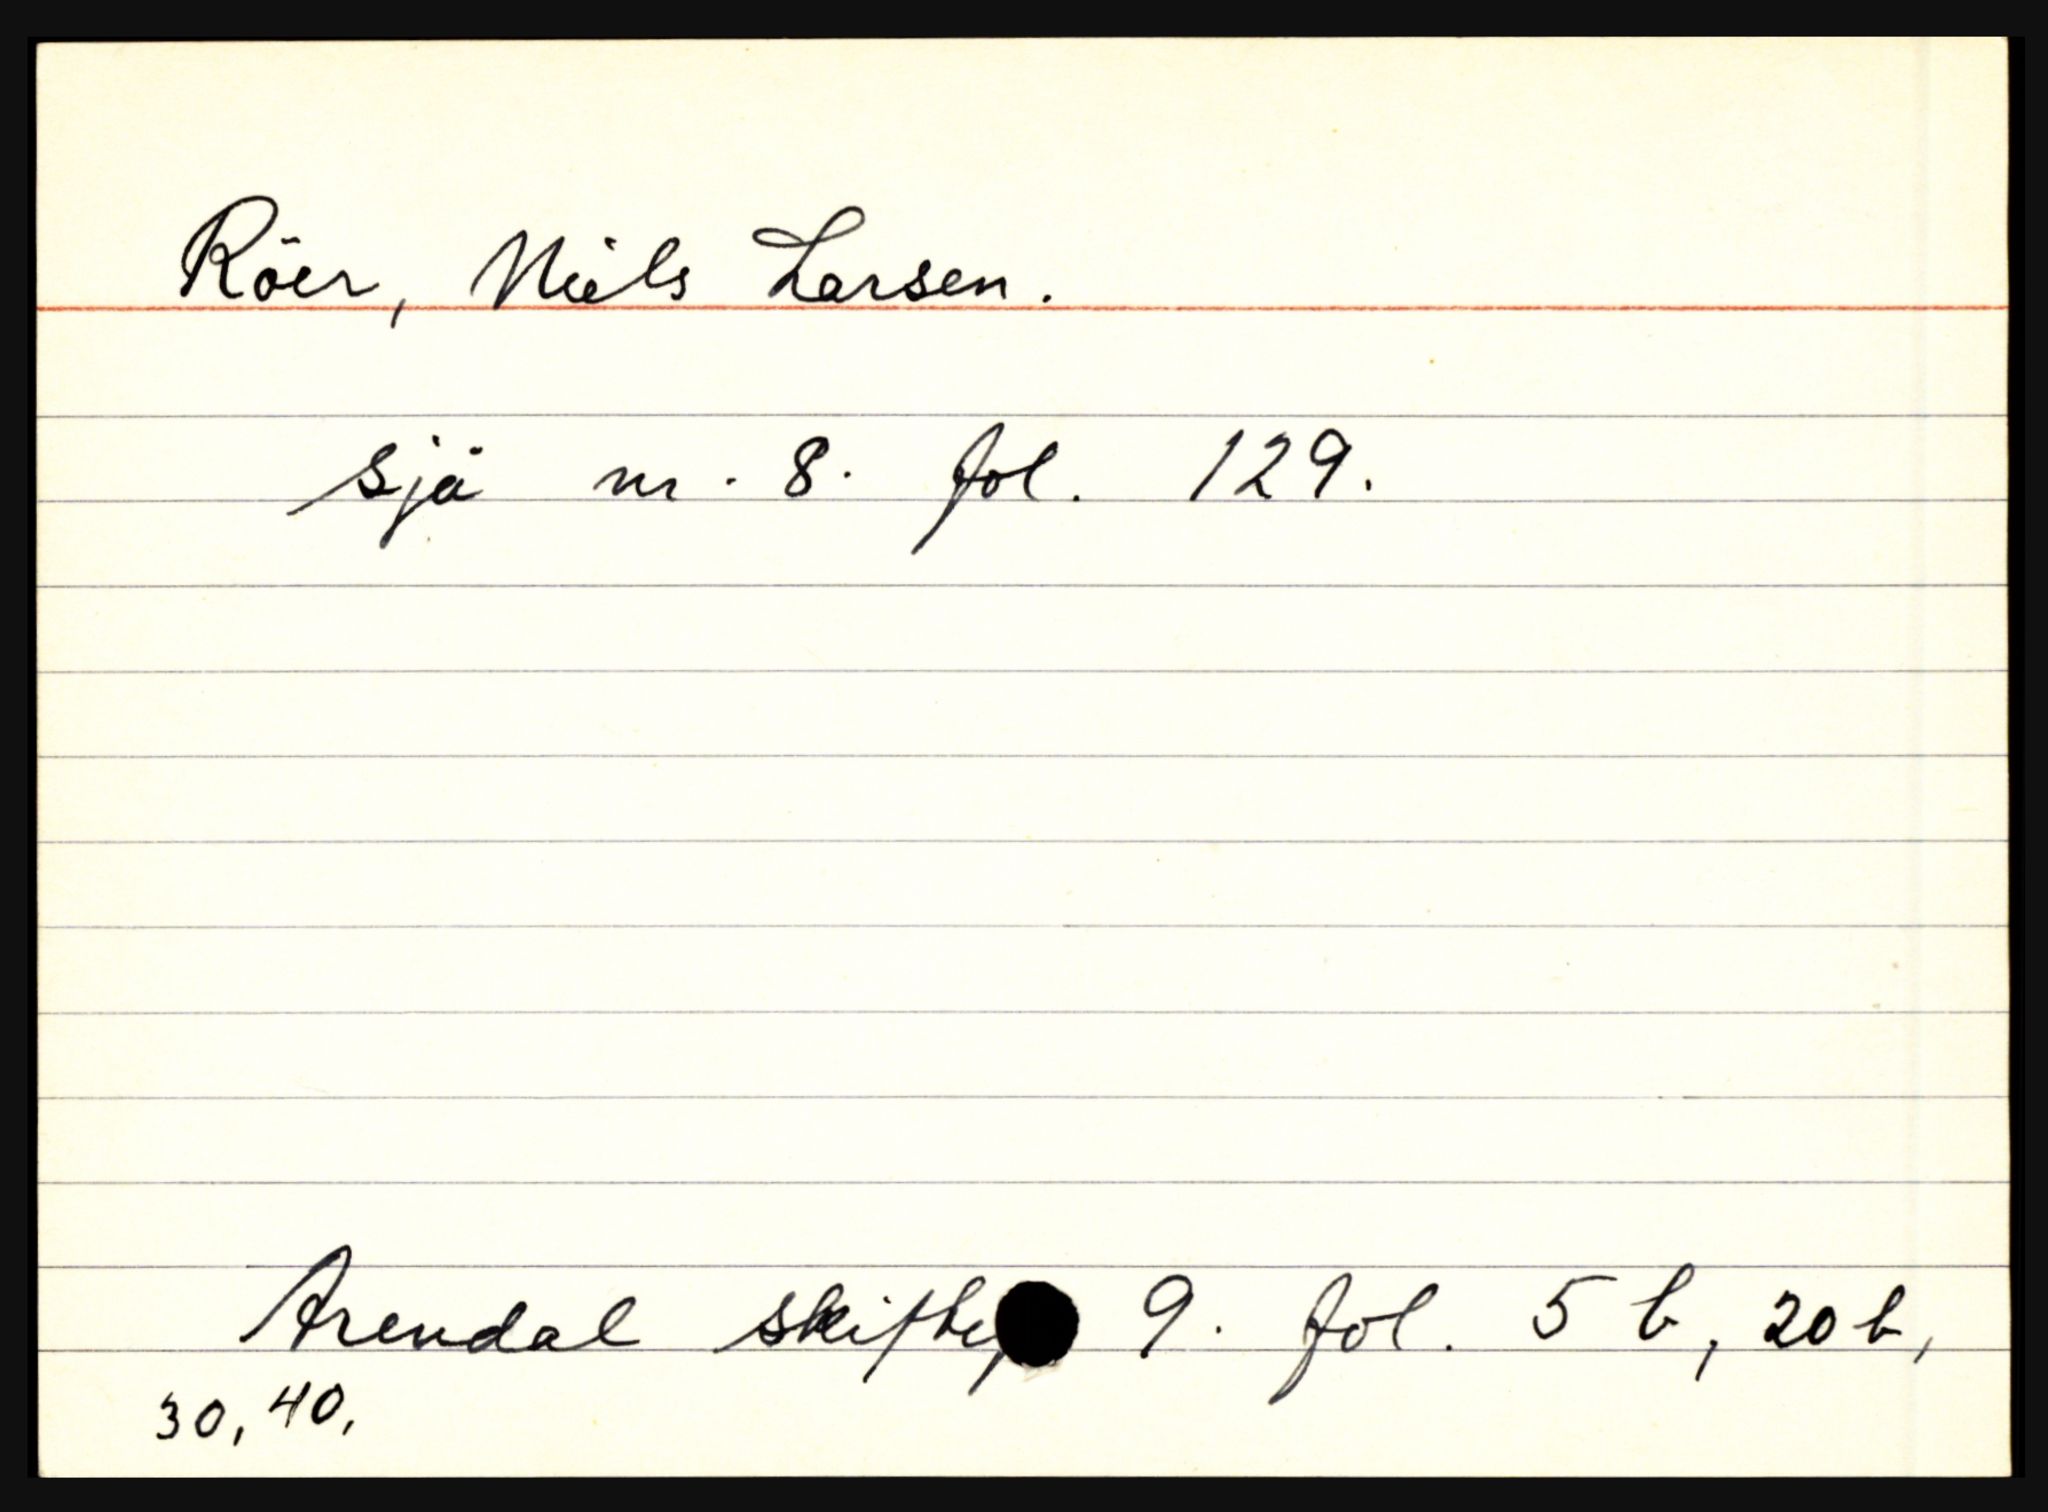 Röer, Niels Larsen.
sjå nr. 8. fol. 129.
Arendal skiftep 9. fol. 5 b, 20 b,
30, 40,